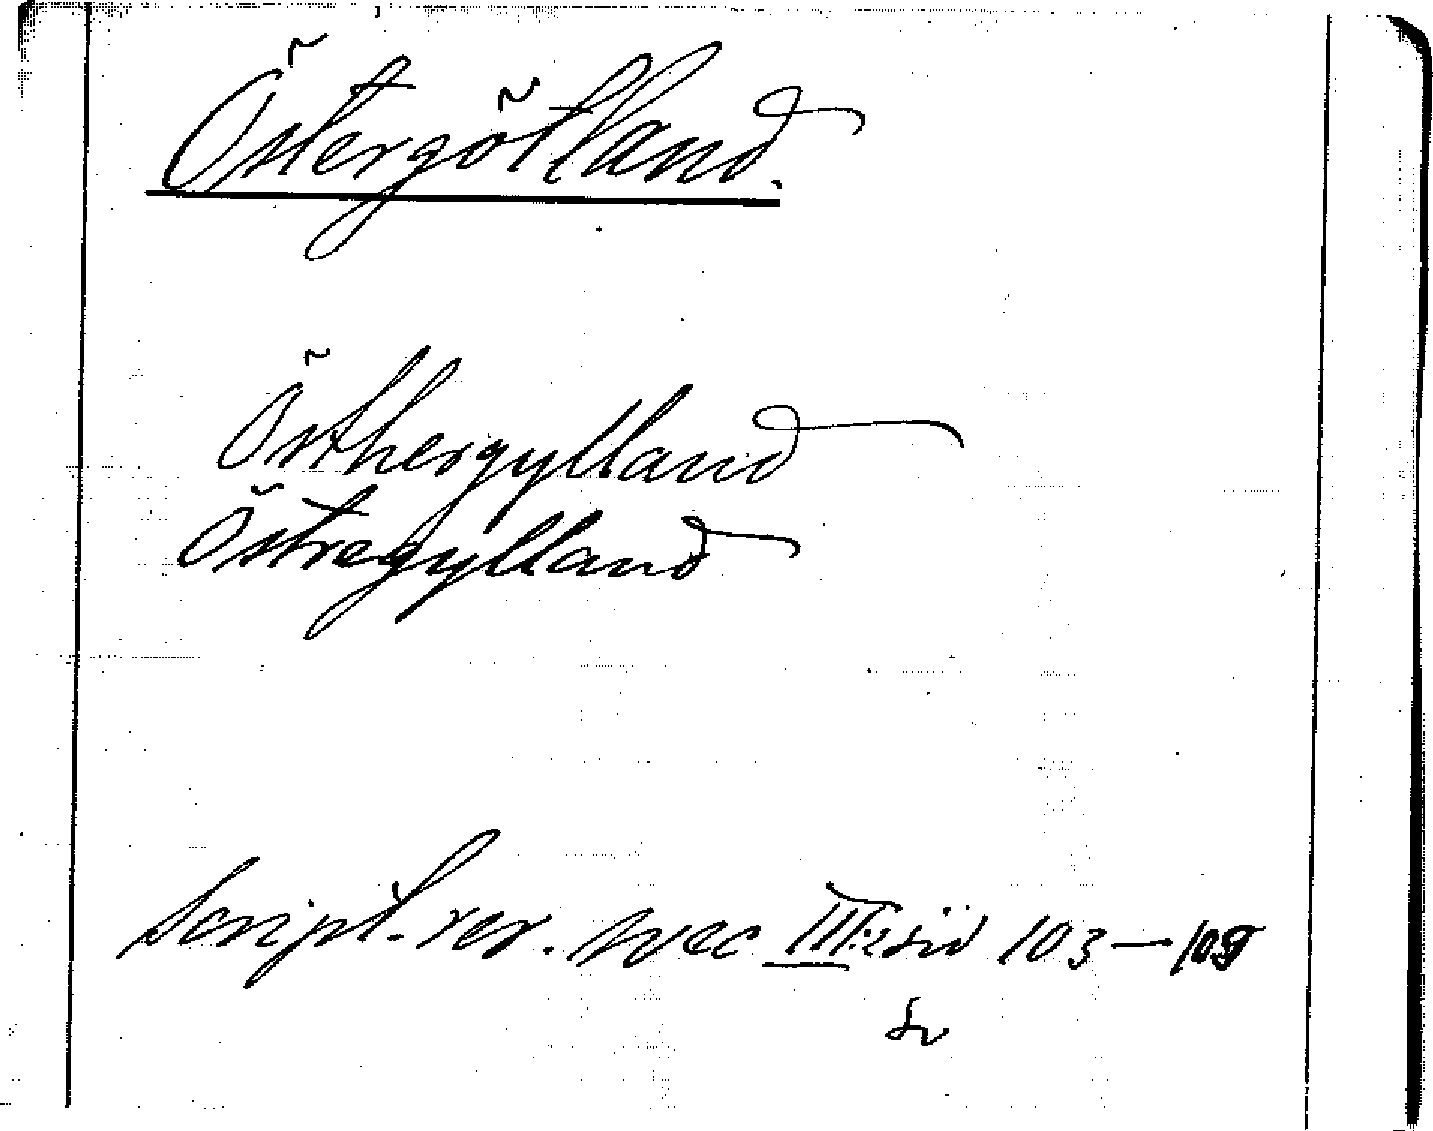 Östergötland.
Östhergylland
Östregylland
Script. rer. svec III:2 sid 103—109